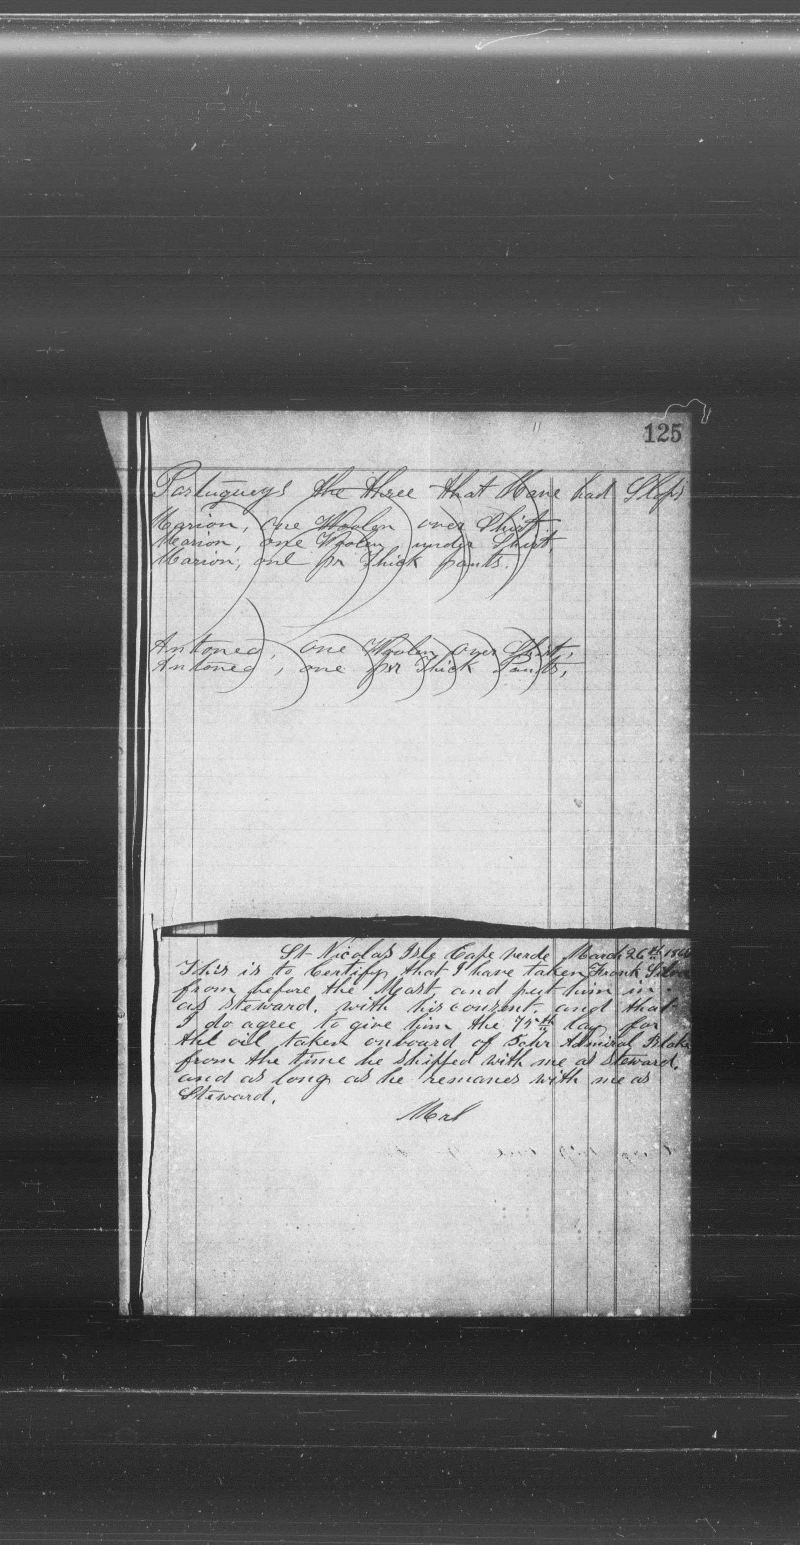 125
Portugueys the three that Have had Slops
Marion, one Woolen over Shirt,
Marion, one Woolen under Shirt,
Marion, one pr Thick pants.
Antoneo, one Woolen over Shirt,
Antoneo, one pr Thick Pants,
St Nicolas Isle Cape verde March 26th
This is to Certify that I have taken Frank Silva
from before the Mast and put him in
as steward. with his consent. and that
I do agree to give him the 75th lay for
the oil taken onboard of Schr Admiral Blake
from the time he shipped with me as steward.
and as long as he remanes with me as
Steward.